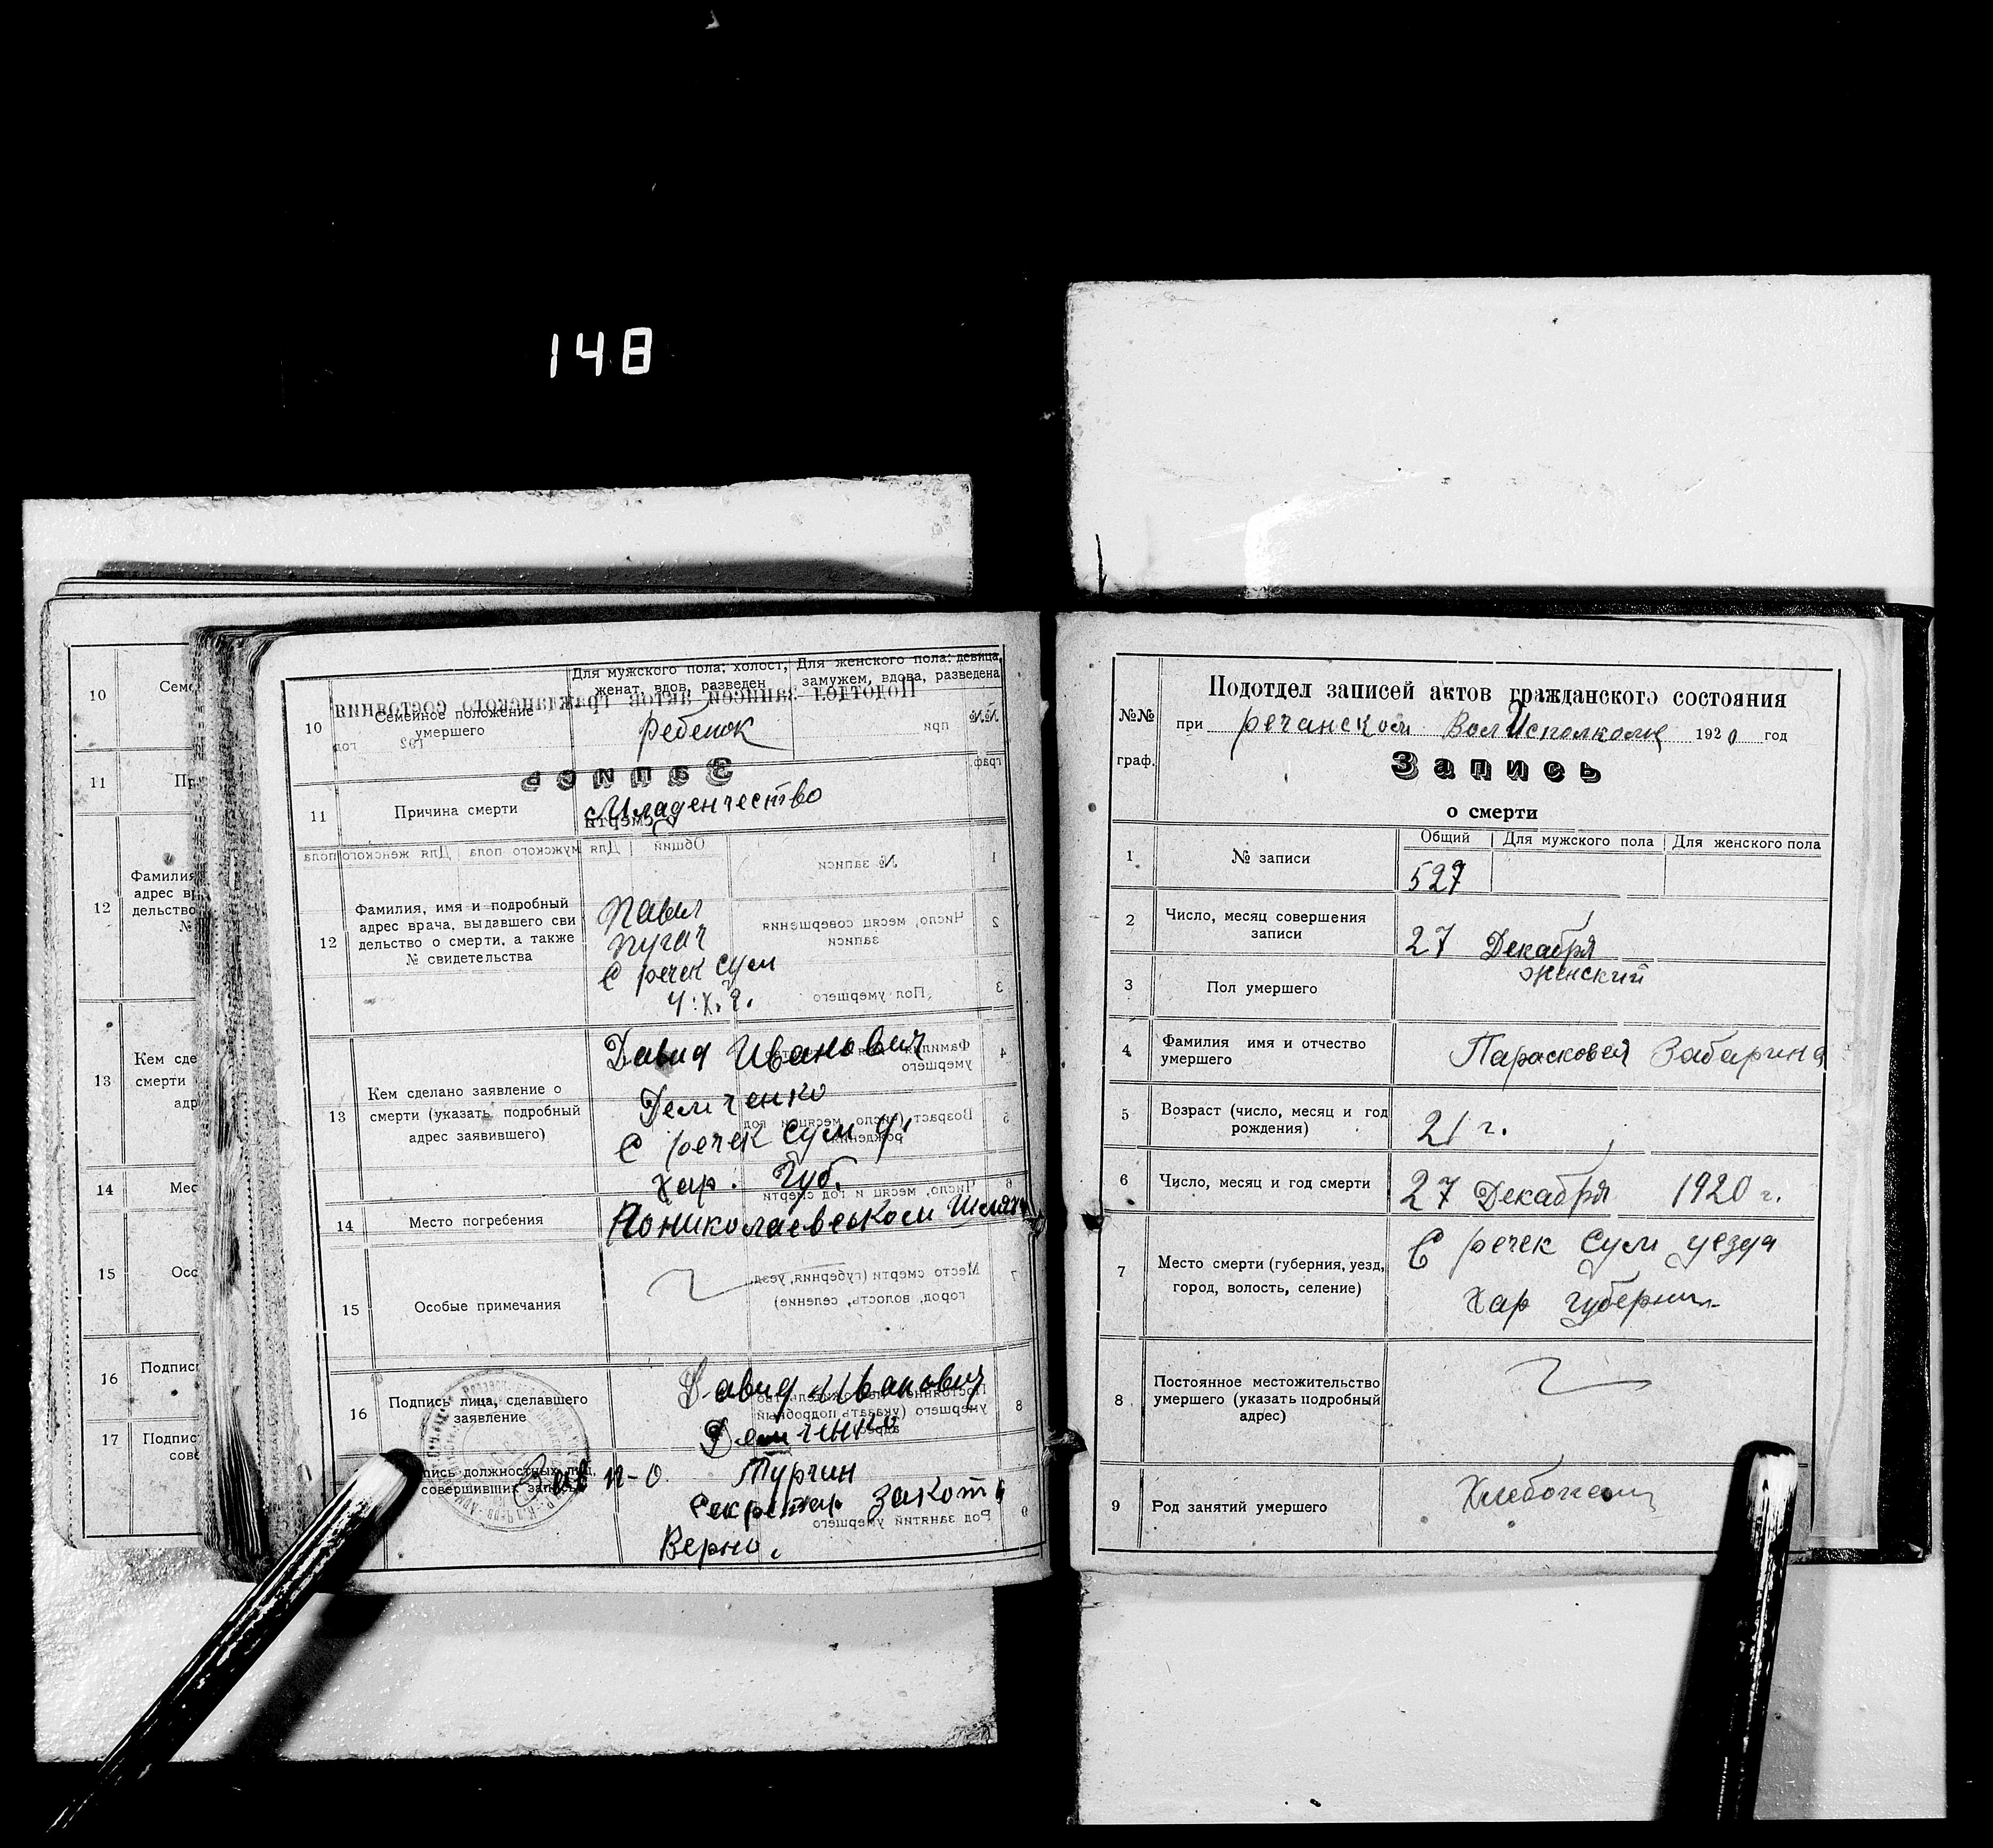 148
10
11
12
13
14
15
16
17
Для мужского пола: холост, женат, вдов, разведен
Для женского пола: девица, замужем, вдова, разведена
10
Семейное положение
умершего
Ребенок
11
Причина смерти
Младенчество
12
Фамилия, имя и подробный
адрес врача, выдавшего сви
дельство о смерти, а также
№ свидетельства
Павел
Пугач
С речек Сум
у. х. г.
13
Кем сделано заявление о
смерти (указать подробный
адрес заявившего)
Давид Иванович
Демченко
С речек Сум у.
Хар. Губ.
14
Место погребения
По николаевськом Шляху
15
Особые примечания
16
Подпись лица, сделавшего
заявление
Давид Иванович
Демченко
пись должностных лиц,
совершивших запись
Зав п-о Турчин
Секретар
Верно.
№№
граф.
Подотдел записей актов гражданского состояния
при речанском ВолИсполкоме 1920 год
Запись
о смерти
1
№ записи
Общий
Для мужского пола
Для женского пола
527
2
Число, месяц совершения
записи
27 Декабря
3
Пол умершего
женский
4
Фамилия имя и отчество
умершего
Парасковея Забарина
5
Возраст (число, месяц и год
рождения)
21 г.
6
Число, месяц и год смерти
27 Декабря 1920 г.
7
Место смерти (губерния, уезд,
город, волость, селение)
С речек Сум уезда
Хар губернии
8
Постоянное местожительство
умершего (указать подробный
адрес)
9
Род занятий умершего